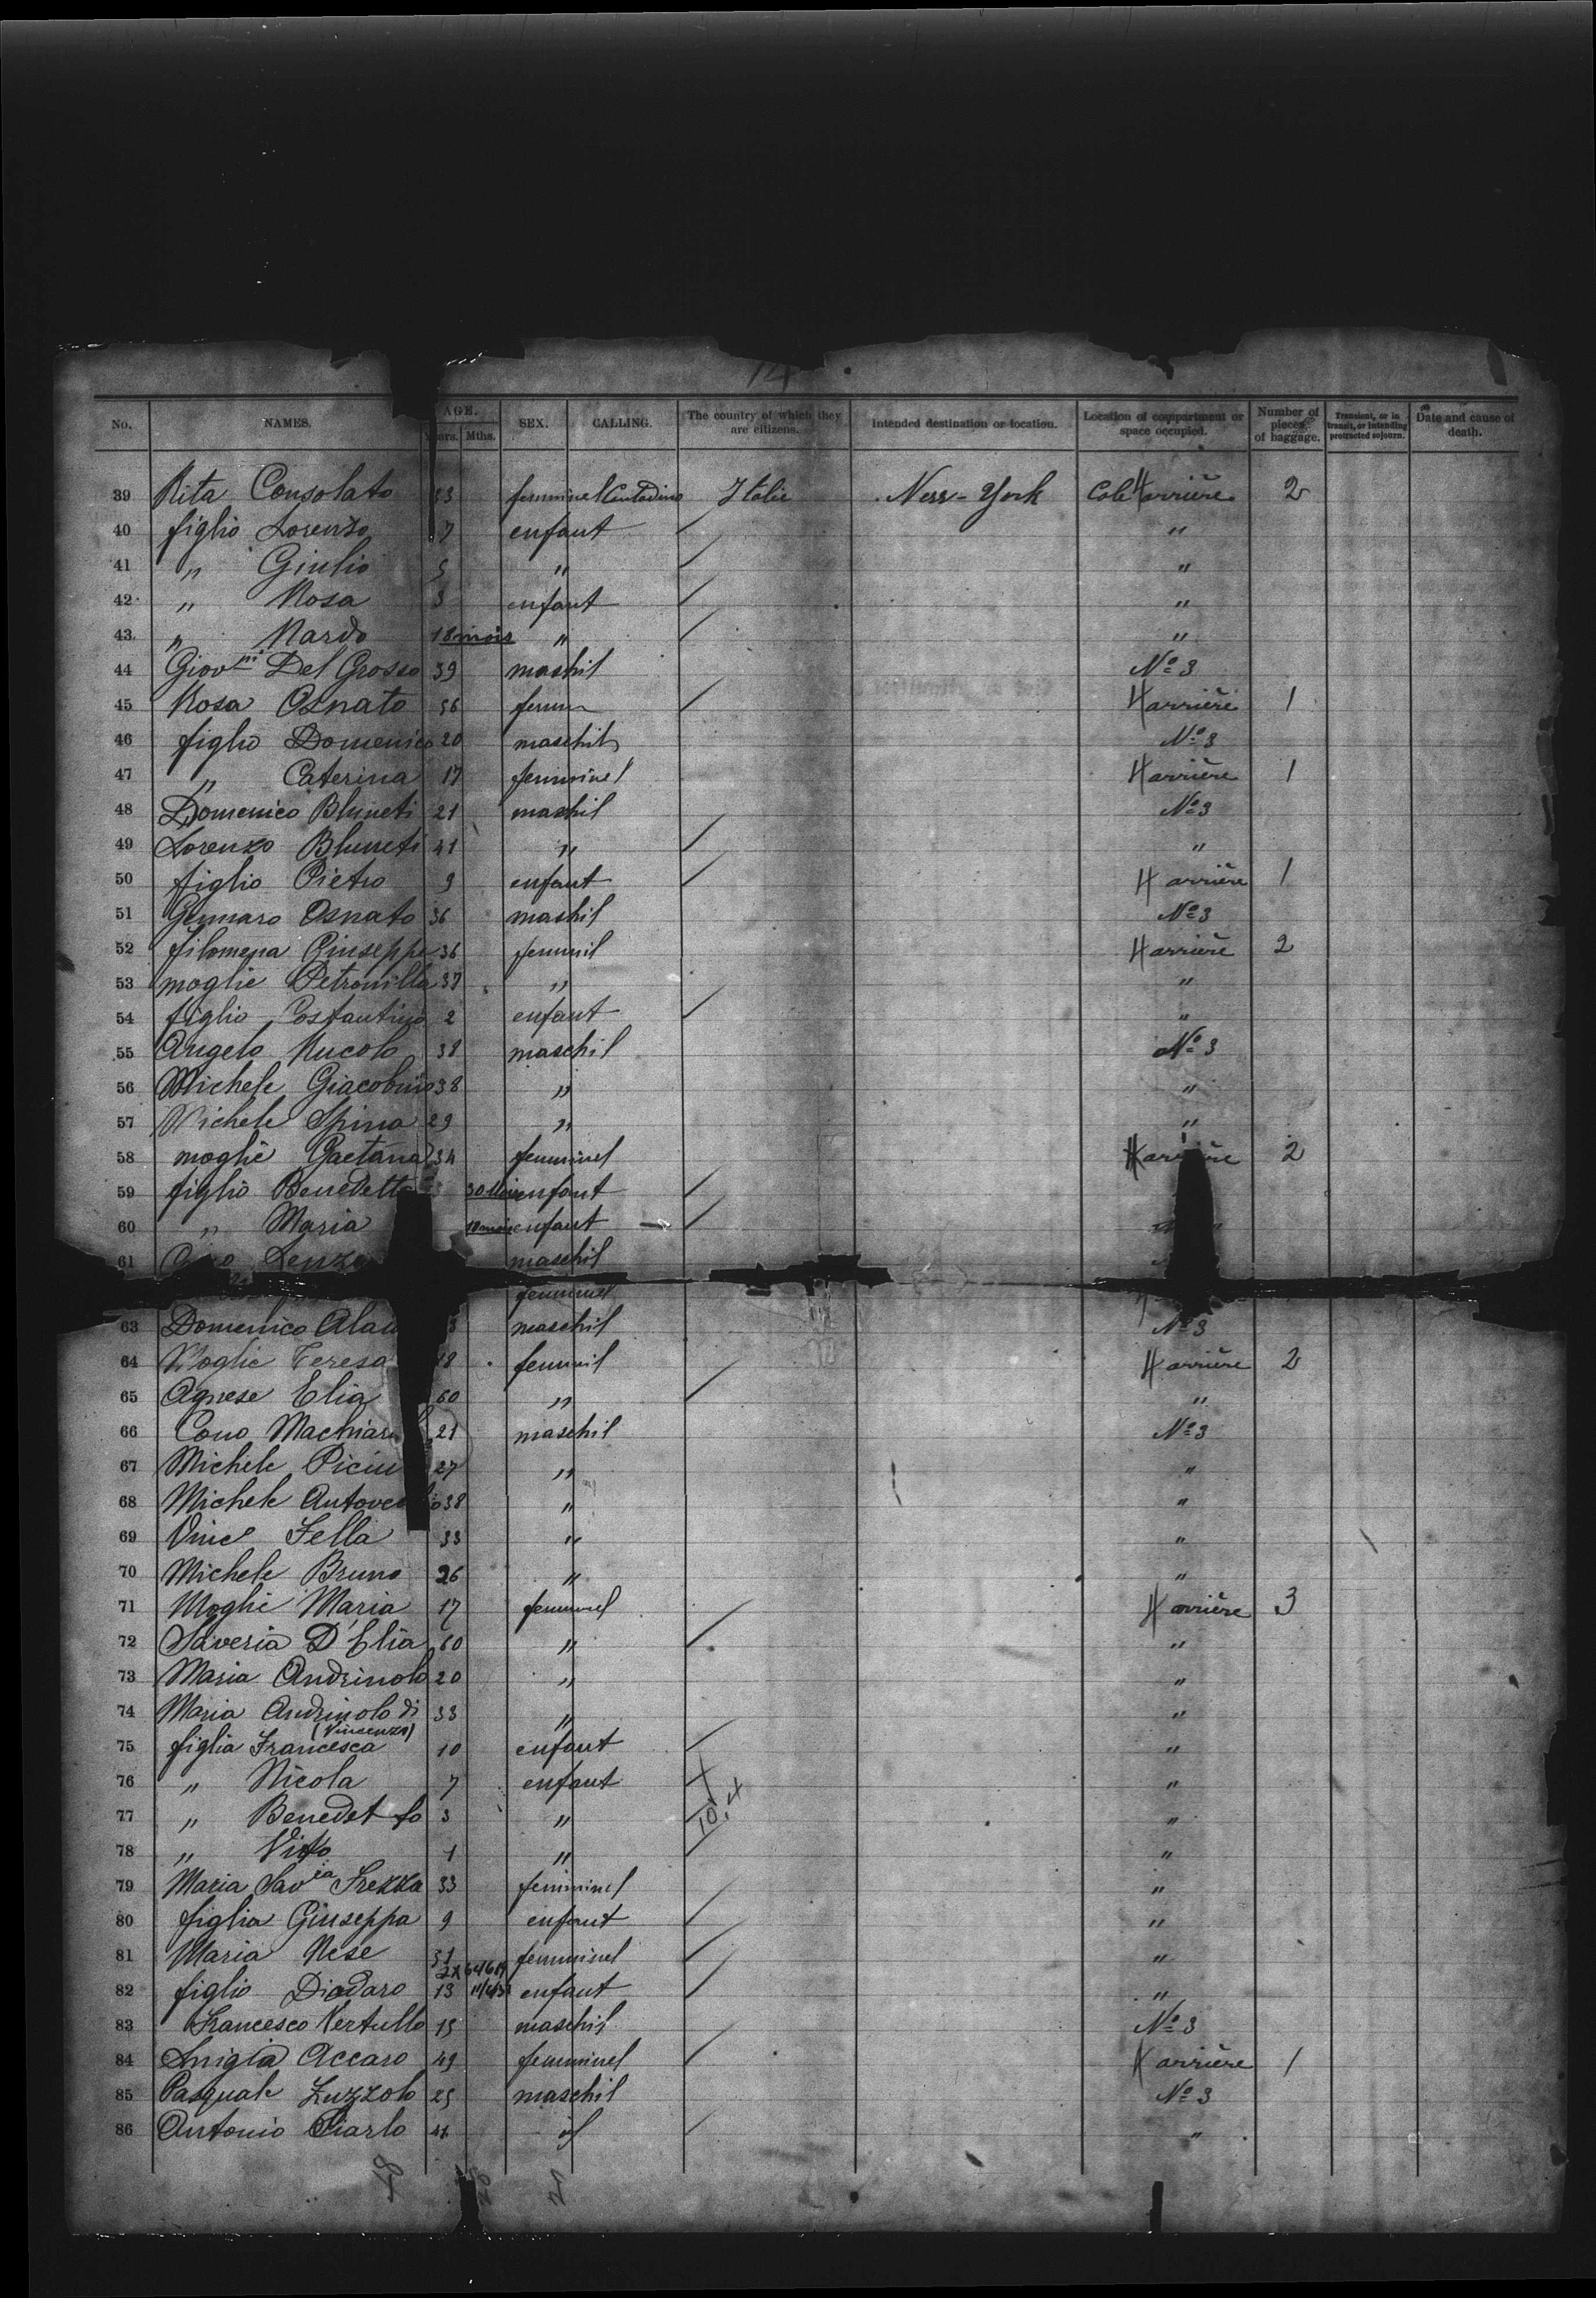 14
No. NAMES. AGE. Years. Mths. SEX. CALLING. The country of which they are citizens. Intended destination or location. Location of compartment or space occupied. Number of pieces of baggage. Transient, or in transit, or intending protracted sojourn. Date and cause of death.
39 Rita Consolato 33 femminel Contadino Italie New-York Cale 4 arrière 2
40 figlio Lorenzo 7 enfant "
41 " Giulio 5 " "
42 " Rosa 3 enfant "
43 " Nardo 18 mois " "
44 Giovni Del Grosso 39 mashil No 3
45 Rosa Osnato 36 femm 4 arrière 1
46 figlio Domenico 20 maschil No 3
47 " Caterina 17 femminel 4 arrière 1
48 Domenico 21 mashil No 3
49 Lorenzo 41 " "
50 figlio Pietro 9 enfant 4 arrière 1
51 Gennaro Osnato 36 mashil No 3
52 filomena Giuseppe 36 femmil 4 arrière 2
53 moglie Petronilla 37 " "
54 figlio Costantino 2 enfant "
55 Angelo Rucolo 38 maschil No 3
56 Michele Giacobino 38 " "
57 Michele Spina 29 " "
58 moglie Gaetana 34 femminel 4 arrière 2
59 figlio Benedetto 30 enfant
60 " Maria 10 mois enfant "
61 maschil
femminel
63 Domenico maschil No 3
64 Moglie Teresa 18 femmil 4 arrière 2
65 Agnese Elia 60 " "
66 Cono 21 maschil No 3
67 Michele 27 " "
68 Michele 38 " "
69 Vince Fella 33 " "
70 Michele Bruno 26 " "
71 Moglie Maria 17 femminel 4 arrière 3
72 Saveria D'Elia 60 " "
73 Maria Andrinolo 20 " "
74 Maria Andrinolo di 33 " "
(Vincenzo)
75 figlia Francesca 10 enfant "
76 " Nicola 7 enfant "
77 " Benedetto 3 " "
78 " Vito 1 " "
79 Maria Savia Frezza 33 femminel "
80 figlia Giuseppa 9 enfant "
81 Maria Nese 31 femminel "
82 figlio Diodaro 13 enfant "
83 Francesco Vertullo 15 maschil No 3
84 Accaro 49 femminel 4 arrière 1
85 Pasquale Luzzolo 25 maschil No 3
86 Antonio "